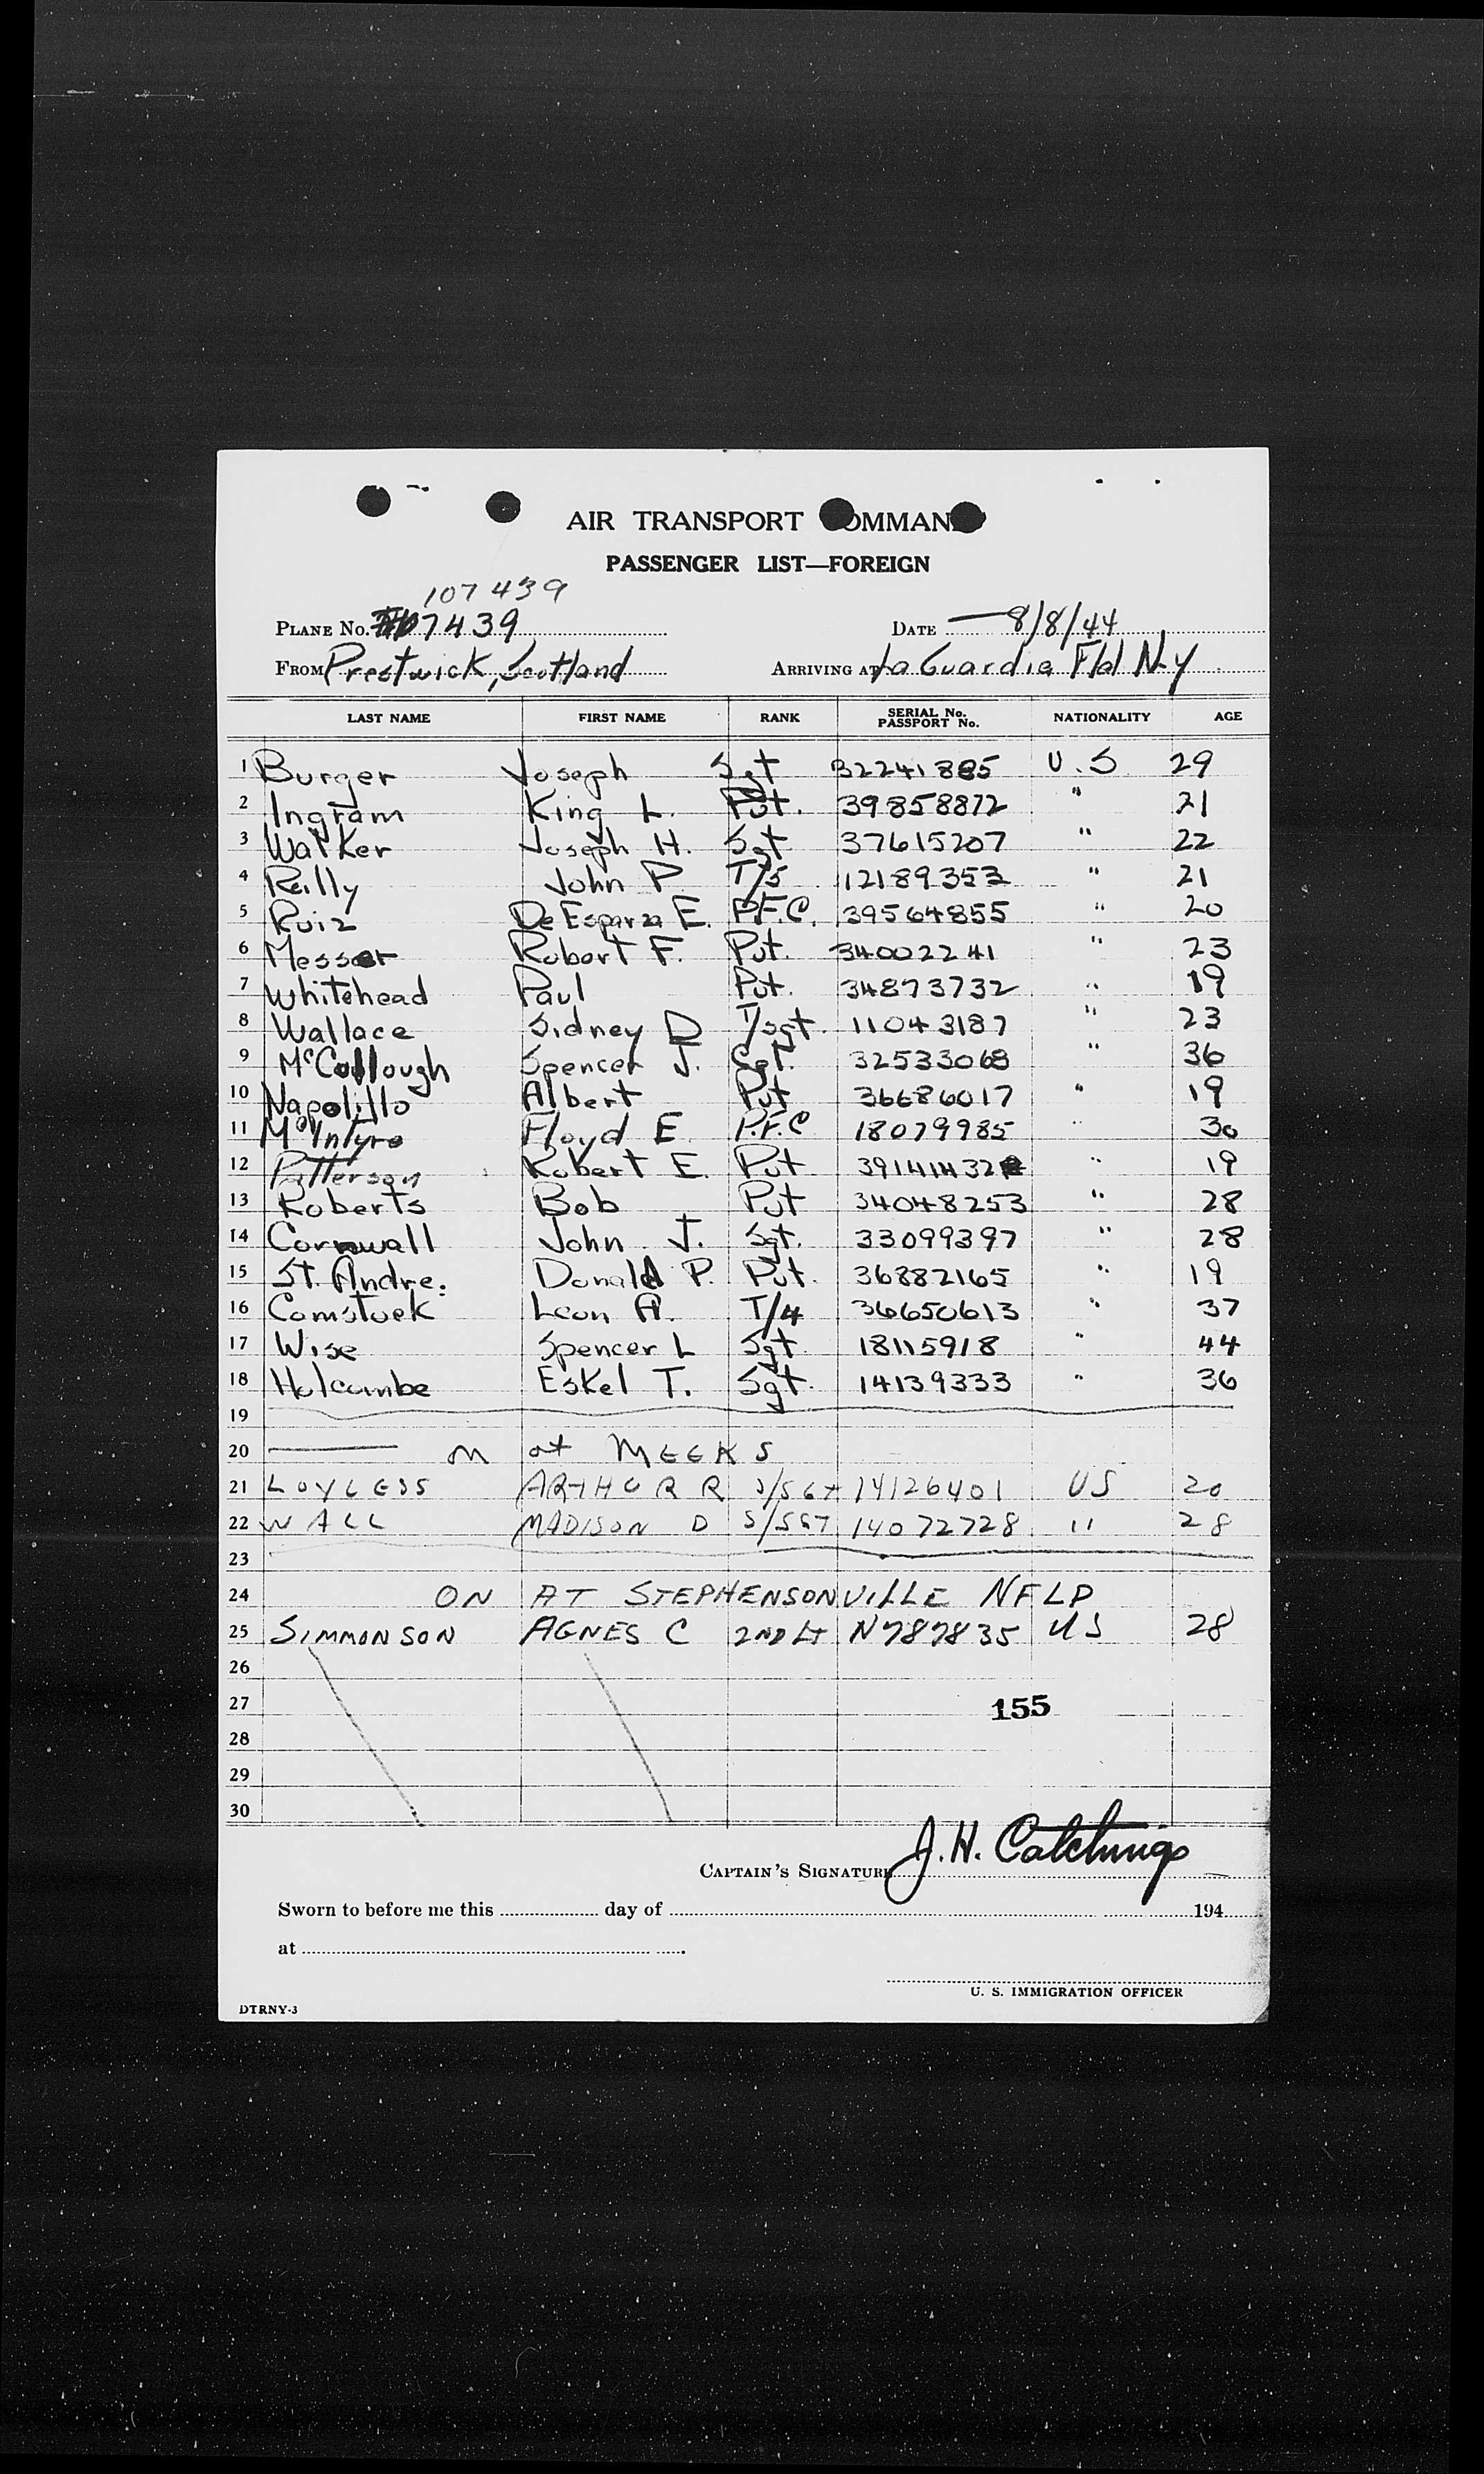 AIR TRANSPORT COMMAND
PASSENGER LIST—FOREIGN
107439
PLANE No. 7439 DATE 8/8/44
FROM Prestwick, Scotland ARRIVING AT La Guardia Fld N.Y
LAST NAME FIRST NAME RANK SERIAL No. PASSPORT No. NATIONALITY AGE
1 Burger Joseph Sgt 32241885 U.S 29
2 Ingram King L. Pvt. 39858872 " 21
3 Walker Joseph H. Sgt 37615207 " 22
4 Reilly John P T/5 12189353 " 21
5 Ruiz De Esparza E. P.F.C. 39564855 " 20
6 Messer Robert F. Pvt. 34002241 " 23
7 Whitehead Paul Pvt. 34873732 " 19
8 Wallace Sidney D T/sgt. 11043187 " 23
9 McCollough Spencer J. 32533068 " 36
10 Napolillo Albert Pvt 36686017 " 19
11 McIntyre Floyd E P.F.C 18079985 " 30
12 Patterson Robert E. Pvt 39141432 " 19
13 Roberts Bob Pvt 34048253 " 28
14 Cornwall John J. Sgt. 33099397 " 28
15 St. Andre. Donald P. Pvt. 36882165 " 19
16 Comstock Leon A. T/4 36650613 " 37
17 Wise Spencer L Sgt 18115918 " 44
18 Holcombe Eskel T. Sgt. 14139333 " 36
19
20 on at MEEKS
21 LOYLESS ARTHUR R S/SGT 14126401 US 20
22 WALL MADISON D S/SGT 14072728 " 28
23
24 ON AT STEPHENSONVILLE NFLD
25 SIMMONSON AGNES C 2ND LT N787835 US 28
26
27 155
28
29
30
CAPTAIN'S SIGNATURE J. H. Catchings
Sworn to before me this day of 194
at
U. S. IMMIGRATION OFFICER
DTRNY-3